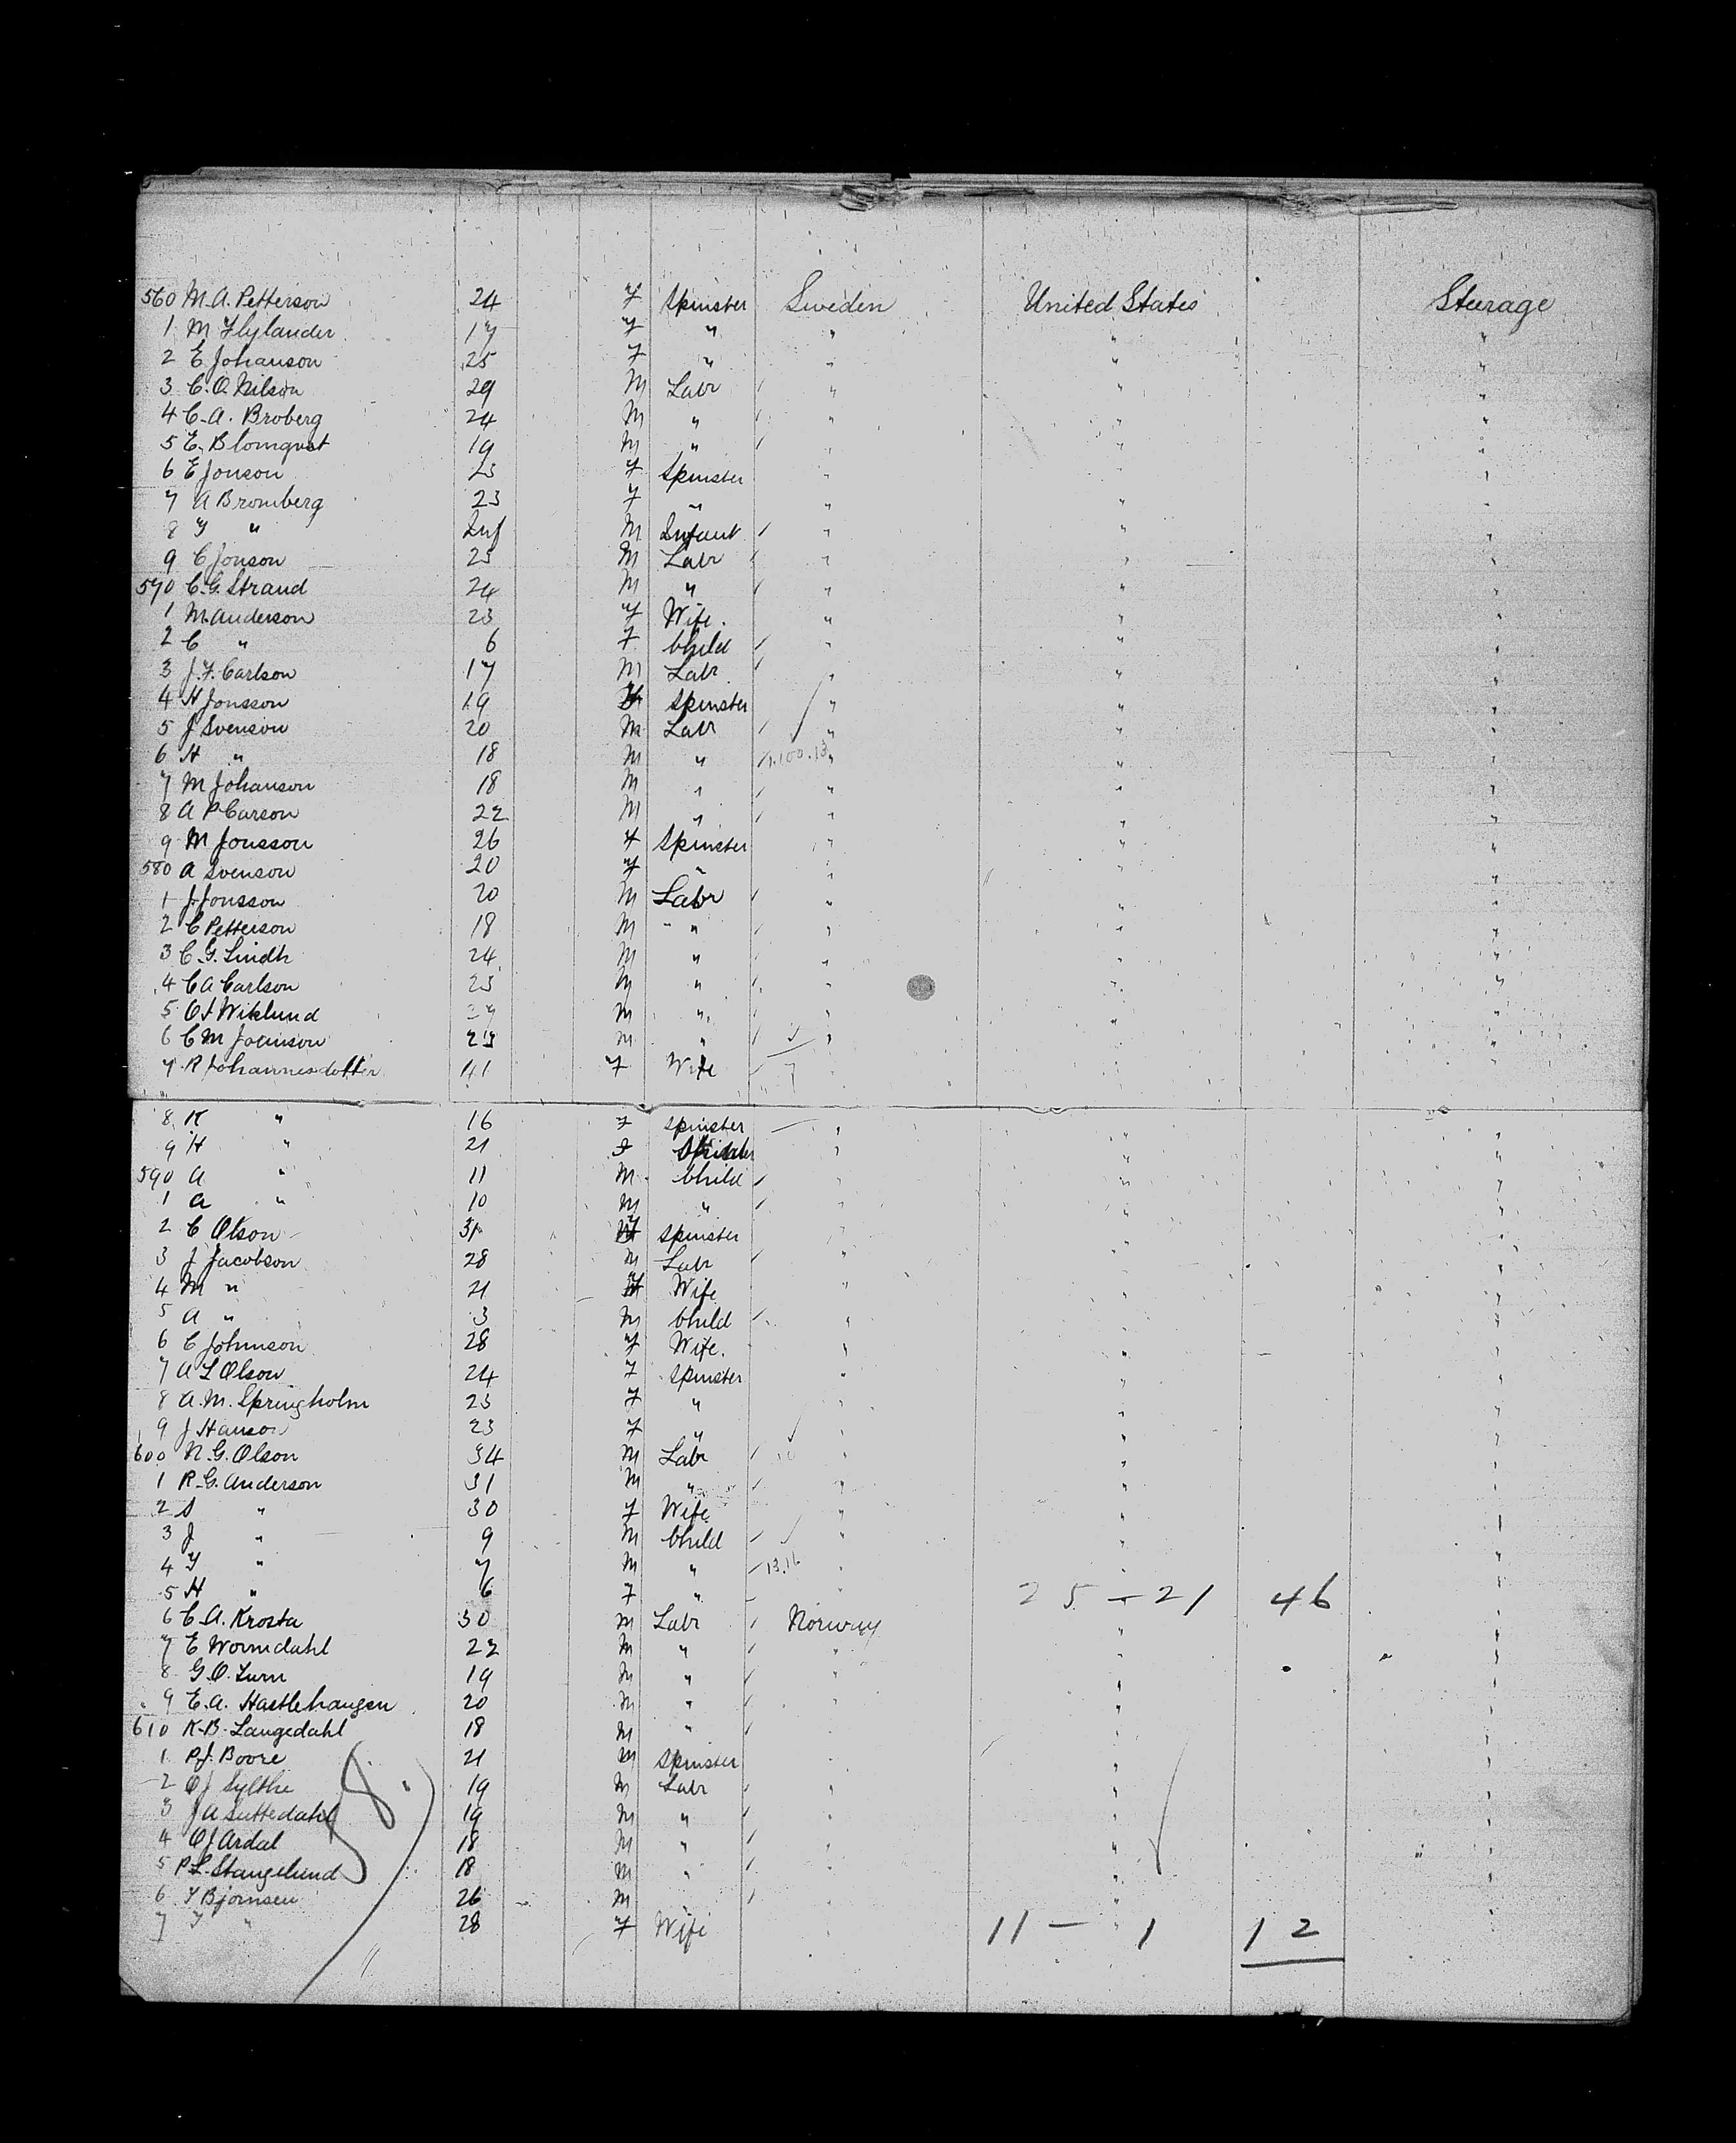 560 M. A. Petterson 24 F Spinster Sweden United States Steerage
1 M Flylander 17 F " " " "
2 E Johanson 25 F " " " "
3 C. O. Nilson 29 M Labr " " "
4 C. A. Broberg 24 M " " " "
5 E. Blomqvist 19 M " " " "
6 E Jonson 23 F Spinster " " "
7 A Bromberg 23 F " " " "
8 F " Inf M Infant " " "
9 C Jonson 25 M Labr " " "
570 C. G. Strand 24 M " " " "
1 M. Anderson 23 F Wife. " " "
2 C " 6 F Child " " "
3 J. F. Carlson 17 M Labr " " "
4 H Jonsson 19 F Spinster " " "
5 J Svenson 20 M Labr " " "
6 H " 18 M " " " "
7 M Johanson 18 M " " " "
8 A P Carson 22 M " " " "
9 M Jonsson 26 F Spinster " " "
580 A Svenson 20 F " " " "
1 J. Jonsson 20 M Labr " " "
2 C Petterson 18 M " " " "
3 C. G. Lindh 24 M " " " "
4 C A Carlson 23 M " " " "
5 Wiklund M " " " "
6 C M 23 M " " " "
7 R Johannesdotter 41 F Wife " " "
8 K " 16 F Spinster " " "
9 H " 21 F Spinster " " "
590 A " 11 M Child " " "
1 A " 10 M " " " "
2 C Olson 31 F Spinster " " "
3 J Jacobson 28 M Labr " " "
4 M " 21 F Wife " " "
5 A " 3 M Child " " "
6 C Johnson 28 F Wife. " " "
7 A L Olson 24 F Spinster " " "
8 A. M. Springholm 23 F " " " "
9 J Hanson 23 F " " " "
600 N. G. Olson 34 M Labr " " "
1 R. G. Anderson 31 M " " " "
2 S " 30 F Wife " " "
3 J " 9 M Child " " "
4 F " 7 M " 13.16 " " "
5 H " 6 F " " 25 – 21 46
6 C. A. Krosta 30 M Labr Norway " "
7 E Wormdahl 22 M " " " "
8 G. O. Lurn 19 M " " " "
9 E. A. Hastlehaugen 20 M " " " "
610 K. B. Langedahl 18 M " " " "
1 P. J. Boore 21 M Spinster " " "
2 O J Sylthe 19 M Labr " " "
3 J A Suttedahl 19 M " " " "
4 O J Ardal 18 M " " " "
5 P L. Stangelund 18 M " " " "
6 F Bjornsen 26 M " " "
7 F " 28 F Wife " 11 – 1 12